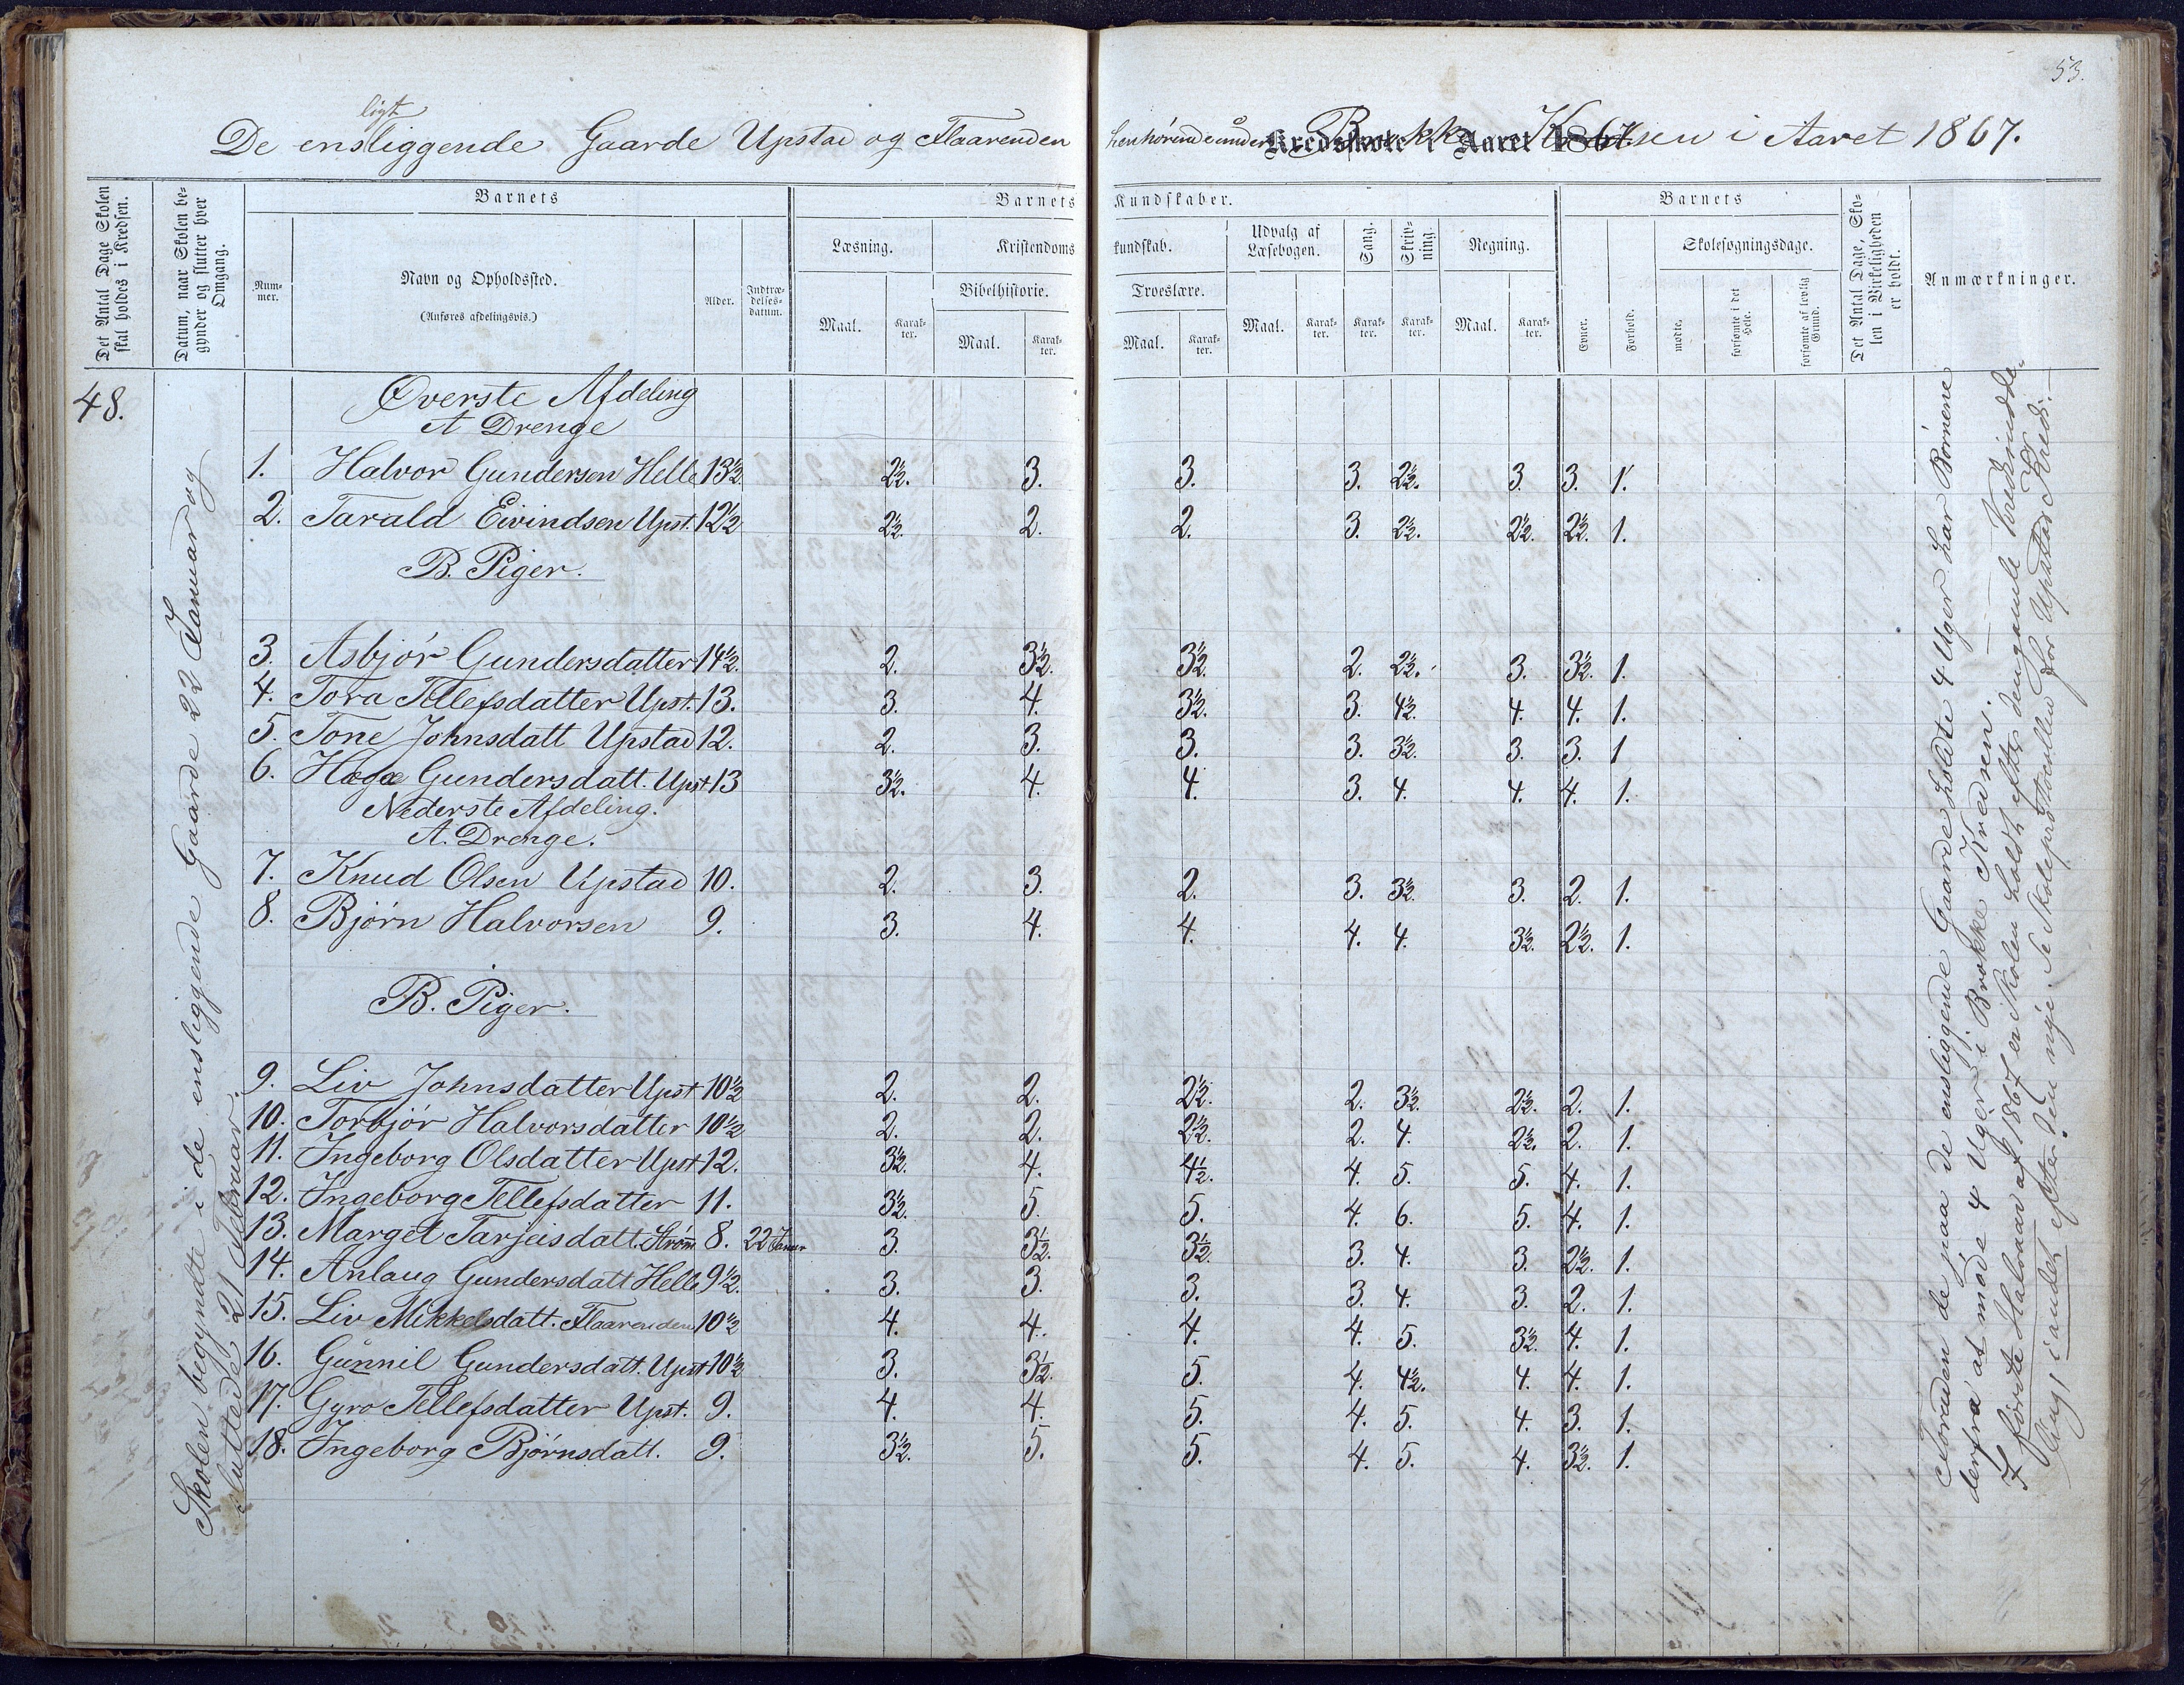 53.
ligt
De ensliggende Gaarde Upstad og Flaarenden henhørende under Brokke Kredsen i Aaret 1867.
Kredsskole i Aaret 186
Det Antal Dage Skolen skal holdes i Kredsen.
Datum, naar Skolen begynder og slutter hver Omgang.
Barnets
Barnets Kundskaber.
Barnets
Det Antal Dage, Skolen i Virkeligheden er holdt.
Anmærkninger.
Nummer.
Navn og Opholdssted.
(Anføres afdelingsvis.)
Alder.
Indtrædelsesdatum.
Læsning.
Kristendomskundskab.
Udvalg af Læsebogen.
Sang.
Skrivning.
Regning.
Evner.
Forhold.
Skolesøgningsdage.
Bibelhistorie.
Troeslære.
mødte.
forsømte i det Hele.
forsømte af lovlig Grund.
Maal. Karakter. Maal. Karakter. Maal. Karakter. Maal. Karakter. Karakter. Karakter. Maal. Karakter.
48.
Skolen begyndte i de ensliggende Gaarde 22 Januar og
sluttede 21 Februar.
Øverste Afdeling
A Drenge
1. Halvor Gundersen Helle 13½. 2½. 3. 3. 3. 2½. 3. 3. 1.
2. Tarald Eivindsen Upst. 12½ 2½. 2. 2. 3. 2½. 2½. 2½. 1.
B. Piger.
3. Asbjør Gundersdatter 14½. 2. 3½. 3½. 2. 2½. 3. 3½. 1.
4. Tora Tellefsdatter Upst. 13. 3. 4. 3½. 3. 4½. 4. 4. 1.
5. Tone Johnsdatt Upstad 12. 2. 3. 3. 3. 3½. 3. 3. 1
6. Hæge Gundersdatt. Upst 13 3½. 4. 4. 3. 4. 4. 4. 1.
Nederste Afdeling.
A. Drenge.
7. Knud Olsen Upstad 10. 2. 3. 2. 3. 3½. 3. 2. 1.
8. Bjørn Halvorsen 9. 3. 4. 4. 4. 4. 3½. 2½. 1.
B. Piger.
9. Liv Johnsdatter Upst 10½ 2. 2. 2½. 2. 3½. 2½. 2. 1.
10. Torbjør Halvorsdatter 10½ 2. 2. 2½. 2. 4. 2½. 2. 1.
11. Ingeborg Olsdatter Upst 12. 3½. 4. 4½. 4. 5. 5. 4. 1.
12. Ingeborg Tellefsdatter 11. 3½. 5. 5. 4. 6. 5. 4. 1.
13. Marget Tarjeisdatt. Strøm 8. 22 Januar 3. 3½. 3½. 3. 4. 3. 2½. 1.
14. Anlaug Gundersdatt Helle 9½. 3. 3. 3. 3. 4. 3. 2. 1.
15. Liv Mikkelsdatt. Flaarenden 10½ 4. 4. 4. 4. 5. 3½. 4. 1.
16. Gunnil Gundersdatt. Upst 10½ 3. 3½. 5. 4. 4½. 4. 4. 1.
17. Gyro Tellefsdatter Upst. 9. 4. 4. 5. 4. 5. 4. 3. 1.
18. Ingeborg Bjørnsdatt. 9. 3½. 5. 5. 4. 5. 4. 3½. 1.
Foruden de paa de ensliggende Gaarde holdte 4 Uger har Børnene
derfra at møde 4 Uger i Brokke Kredsen.
I første Halvaar af 1867 er Skolen holdt efter den gamle Kredsindde-
ling, i andet efter den nye. Se Skoleprotocollen for Upstad Kreds.